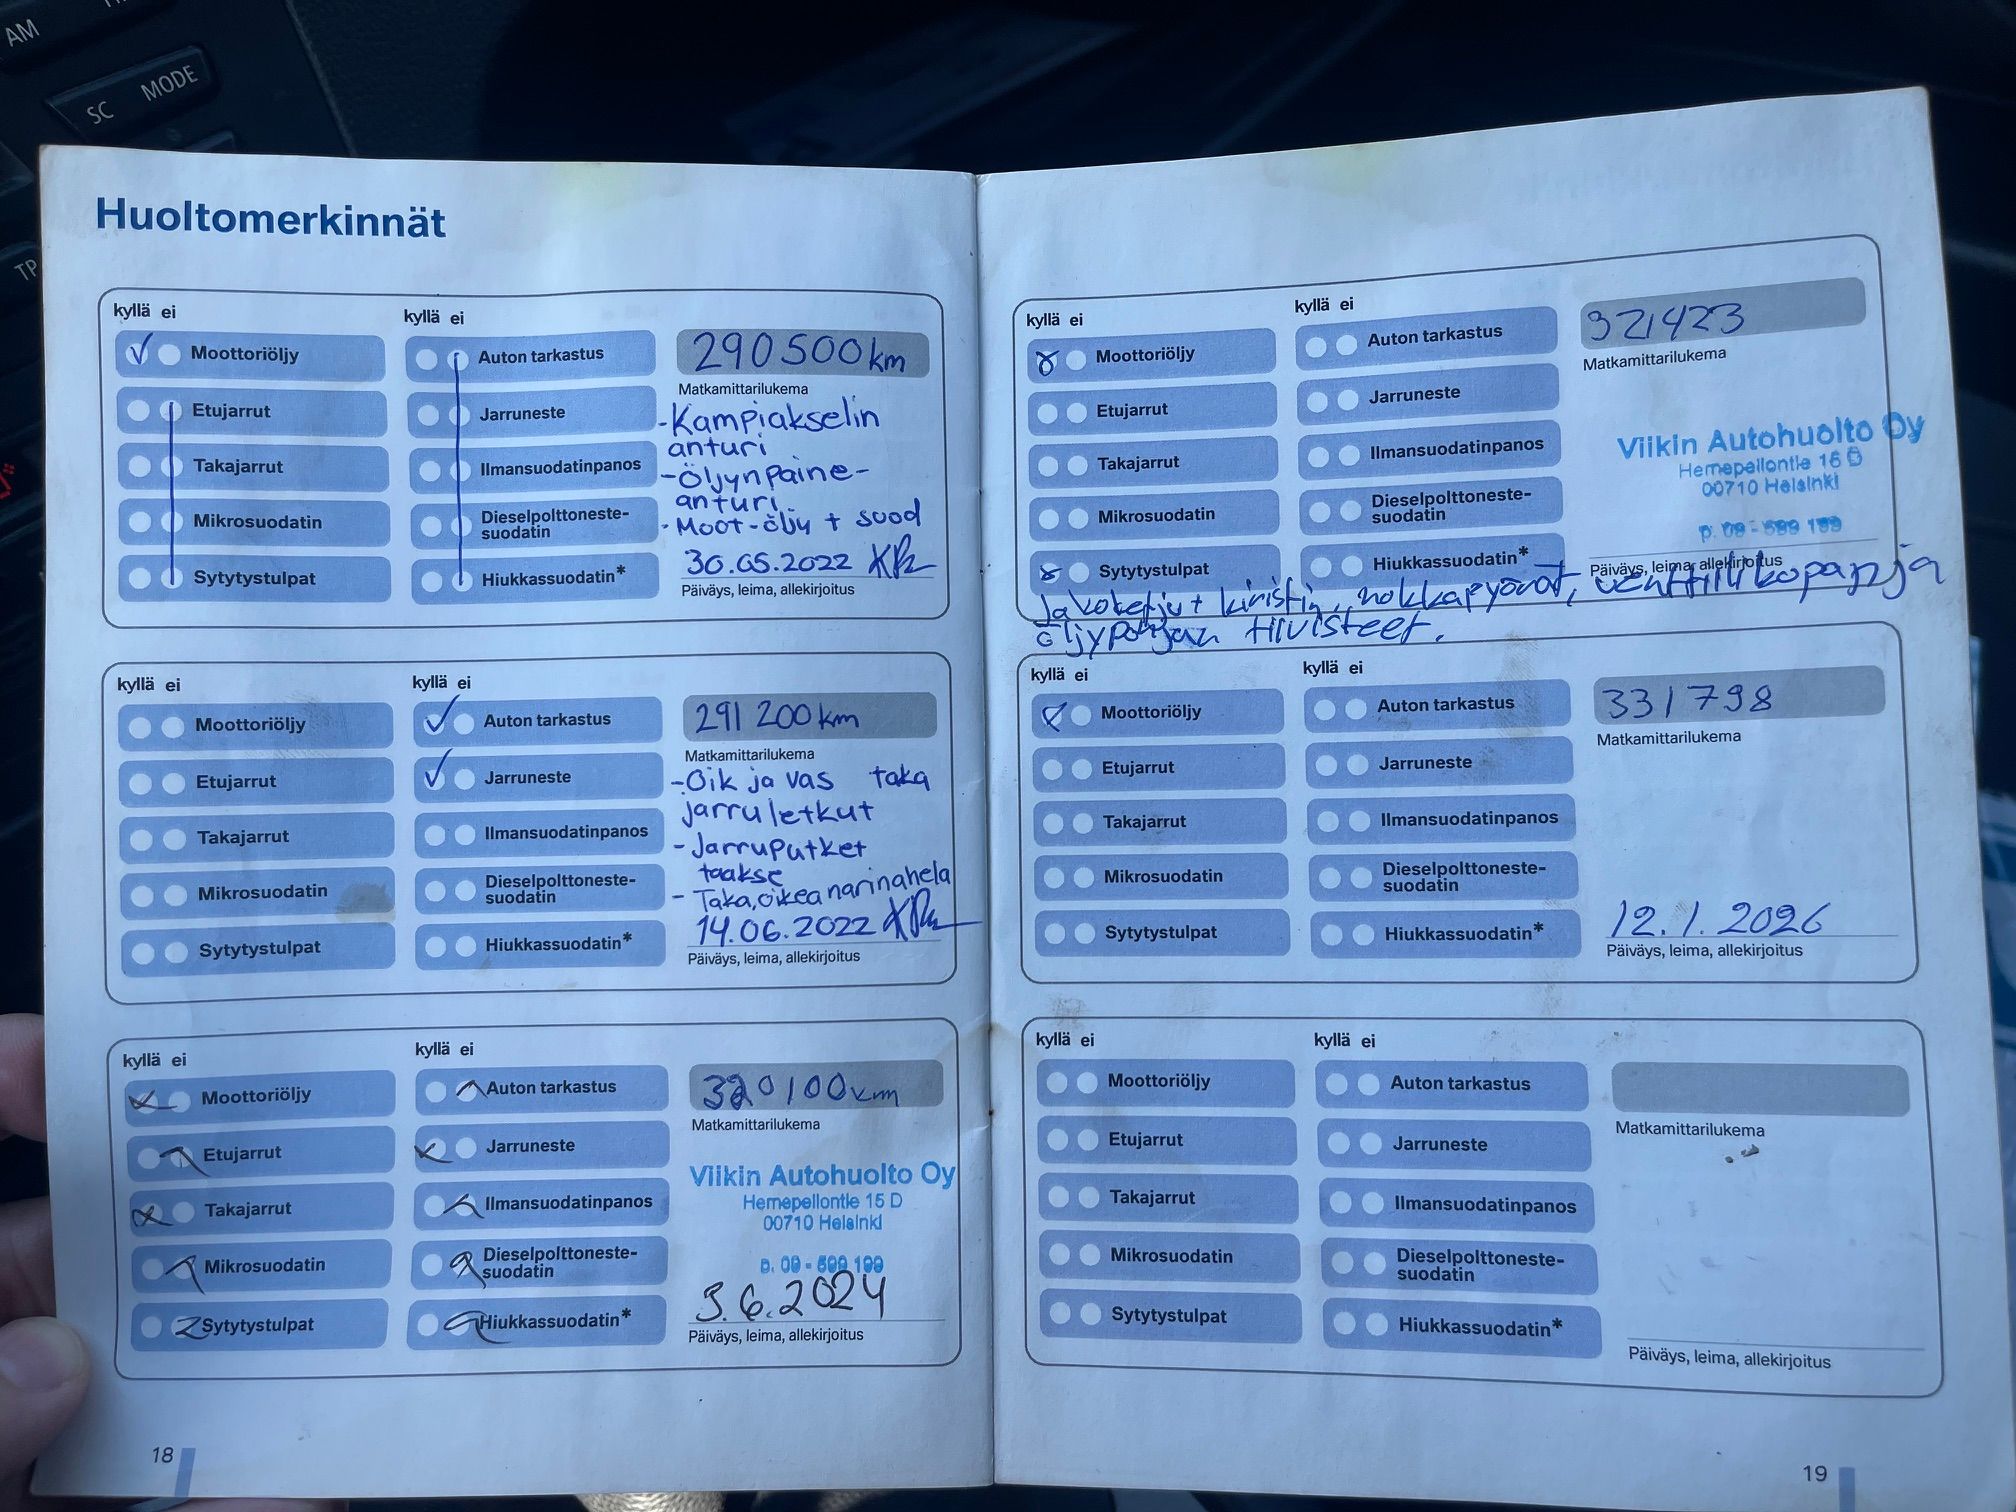 AM
SC MODE
TP
Huoltomerkinnät
kyllä ei
Moottoriöljy
Etujarrut
Takajarrut
Mikrosuodatin
Sytytystulpat
kyllä ei
Auton tarkastus
Jarruneste
Ilmansuodatinpanos
Dieselpolttoneste-
suodatin
Hiukkassuodatin*
290500 km
Matkamittarilukema
-Kampiakselin
anturi
-Öljynpaine-
anturi
-Moot-öljy + suod
30.05.2022
Päiväys, leima, allekirjoitus
kyllä ei
Moottoriöljy
Etujarrut
Takajarrut
Mikrosuodatin
Sytytystulpat
kyllä ei
Auton tarkastus
Jarruneste
Ilmansuodatinpanos
Dieselpolttoneste-
suodatin
Hiukkassuodatin*
291 200 km
Matkamittarilukema
-Oik ja vas taka
jarruletkut
-Jarruputket
taakse
- Taka, oikea narinahela
14.06.2022
Päiväys, leima, allekirjoitus
kyllä ei
Moottoriöljy
Etujarrut
Takajarrut
Mikrosuodatin
Sytytystulpat
kyllä ei
Auton tarkastus
Jarruneste
Ilmansuodatinpanos
Dieselpolttoneste-
suodatin
Hiukkassuodatin*
320100 km
Matkamittarilukema
Viikin Autohuolto Oy
Hernepellontie 15 D
00710 Helsinki
p. 09 - 599 199
3.6.2024
Päiväys, leima, allekirjoitus
18
kyllä ei
Moottoriöljy
Etujarrut
Takajarrut
Mikrosuodatin
Sytytystulpat
kyllä ei
Auton tarkastus
Jarruneste
Ilmansuodatinpanos
Dieselpolttoneste-
suodatin
Hiukkassuodatin*
321423
Matkamittarilukema
Viikin Autohuolto Oy
Hernepellontie 15 D
00710 Helsinki
p. 09 - 599 199
Päiväys, leima, allekirjoitus
Jakoketju + kiristin, nokkapyörät, venttiilikopan ja
öljypohjan tiivisteet.
kyllä ei
Moottoriöljy
Etujarrut
Takajarrut
Mikrosuodatin
Sytytystulpat
kyllä ei
Auton tarkastus
Jarruneste
Ilmansuodatinpanos
Dieselpolttoneste-
suodatin
Hiukkassuodatin*
331798
Matkamittarilukema
12.1.2026
Päiväys, leima, allekirjoitus
kyllä ei
Moottoriöljy
Etujarrut
Takajarrut
Mikrosuodatin
Sytytystulpat
kyllä ei
Auton tarkastus
Jarruneste
Ilmansuodatinpanos
Dieselpolttoneste-
suodatin
Hiukkassuodatin*
Matkamittarilukema
Päiväys, leima, allekirjoitus
19